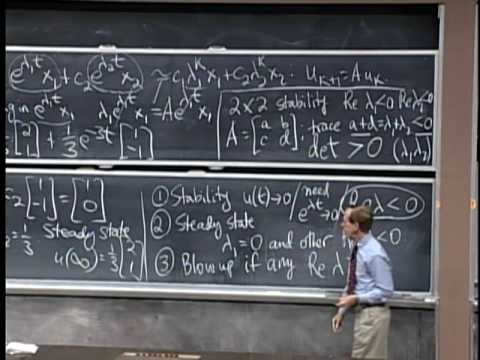 e^{λ₁t} x₁ + c₂ e^{λ₂t} x₂ ~ c₁ λ₁^K x₁ + c₂ λ₂^K x₂ · u_{K+1} = A u_K
in e^{λ₁t} x₁ λ₁ e^{λ₁t} x₁ = A e^{λ₁t} x₁
[2 1] + 1/3 e^{-3t} [1 -1]
2×2 stability Re λ₁<0 Re λ₂<0
A = [a b c d], trace a+d = λ₁+λ₂ < 0
det > 0 (λ₁λ₂)
[1 -1] = [1 0]
= 1/3 Steady state
u(∞) = 1/3 [2 1]
① Stability u(t)→0 need e^{λt}→0 Re λ<0
② Steady state
λ₁=0 and other < 0
③ Blowup if any Re λ